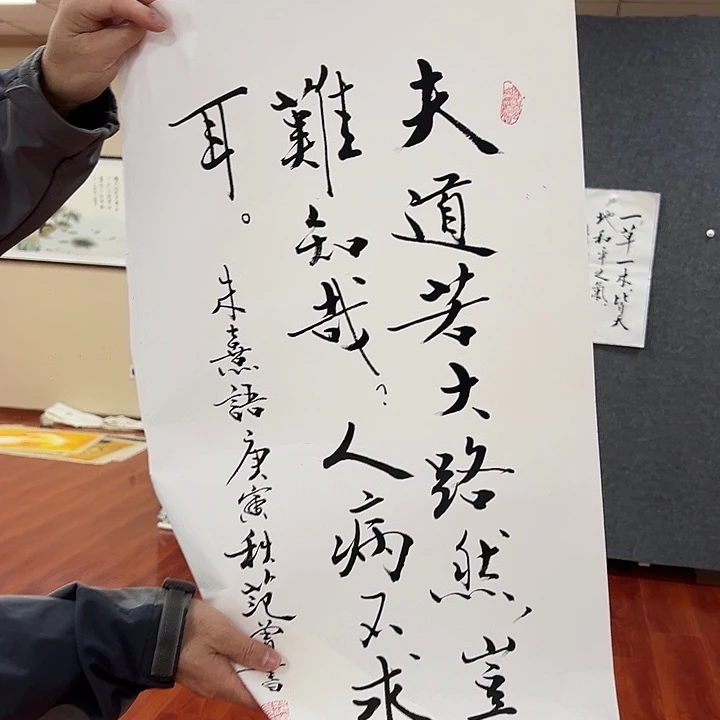 夫道若大路然，豈
難知哉？人病不求
耳。
朱熹語庚寅秋范曾書
一草一木皆天
地和平之氣